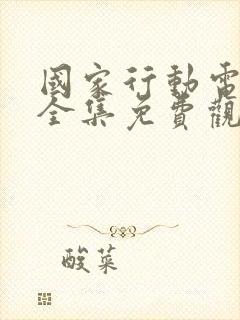 國家行動電
全集免費觀
酸菜